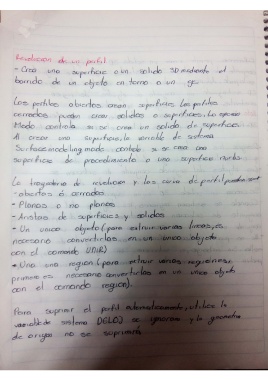 Revolucion de un perfil
- Crea una superficie o un solido 3D mediante el
barrido de un objeto en torno a un eje.
Los perfiles abiertos crean superficies, Los perfiles
cerrados pueden crear solidos o superficies. La opcion
Modo controla si se crea un solido de superficie
Al crear una superficie, la variable de sistema
Surfacemodelingmode controla si se crea una
superficie de procedimiento o una superficie nurbs
La trayectoria de revolucion y las curvas de perfil pueden ser
- abiertos o cerrados
- Planos o no planos
- Aristas de superficies y solidos
- Un unico objeto (para extruir varias lineas, es
necesario convertirlas en un unico objeto
con el comando UNIR)
- Una region (para extruir varias regiones,
primero es necesario convertirlas en un unico objeto
con el comando region).
Para suprimir el perfil automaticamente, utilice la
variable de sistema DELOBJ se ignora y la geometria
de origen no se suprimira